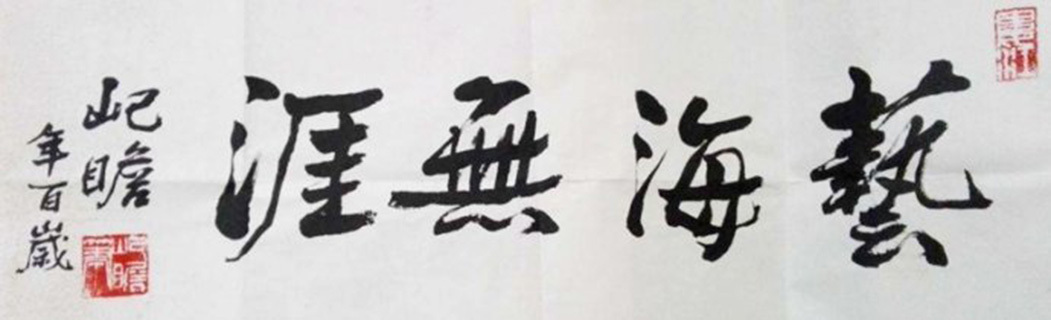 藝海無涯
屺瞻
年百歲